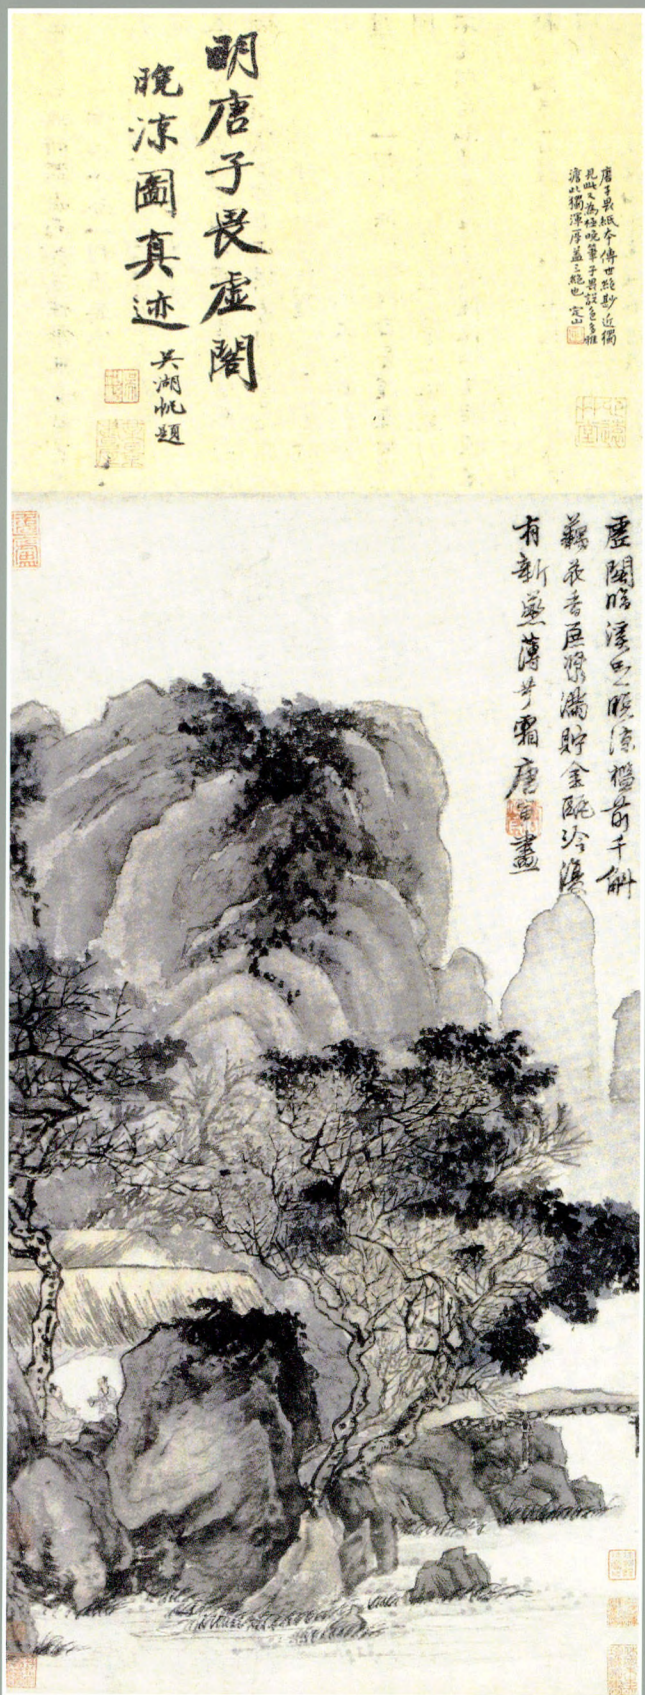 明唐子畏虛閣
晚涼圖真迹
吳湖帆題
唐子畏紙本傳世絕尠近獨
見此又為極晚筆子畏設色多雅
澹此獨渾厚蓋三絕也 定山
虛閣臨溪晚涼檻前千斛
藕花香蔗漿滿貯金甌冷
有新蒸薄荷霜唐寅畫